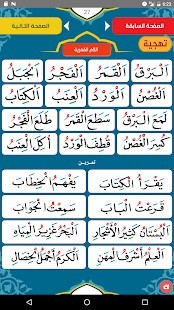 6:25
27
الصفحة السابقة
الصفحة التالية
تهجية
اللام القمرية
اَلْبَرْقُ اَلْقَمَرُ اَلْفَجْرُ اَلْجَبَلُ
اَلْغُصْنُ اَلْوَرْدُ اَلْعِنَبُ اَلْكِتَابُ
لَمَعَ الْبَرْقُ سَطَعَ الْقَمَرُ طَلَعَ الْفَجْرُ
كَبِيرُ الْغُصْنُ قُطِفَ الْوَرْدُ أُكِلَ الْعِنَبُ
تمرين
يَقْرَأُ الْكِتَابَ يَفْهَمُ الْخِطَابَ
قَرَعْتُ الْبَابَ سَمِعْتُ الْجَوَابَ
اَلْبُسْتَانُ كَثِيرُ الْأَشْجَارِ اَلْبَحْرُ غَزِيرُ الْمِيَاهِ
اَلْعِلْمُ أَشْرَفُ الْمِهَنِ اَلْكَرَمُ أَجْمَلُ الْخِصَالِ